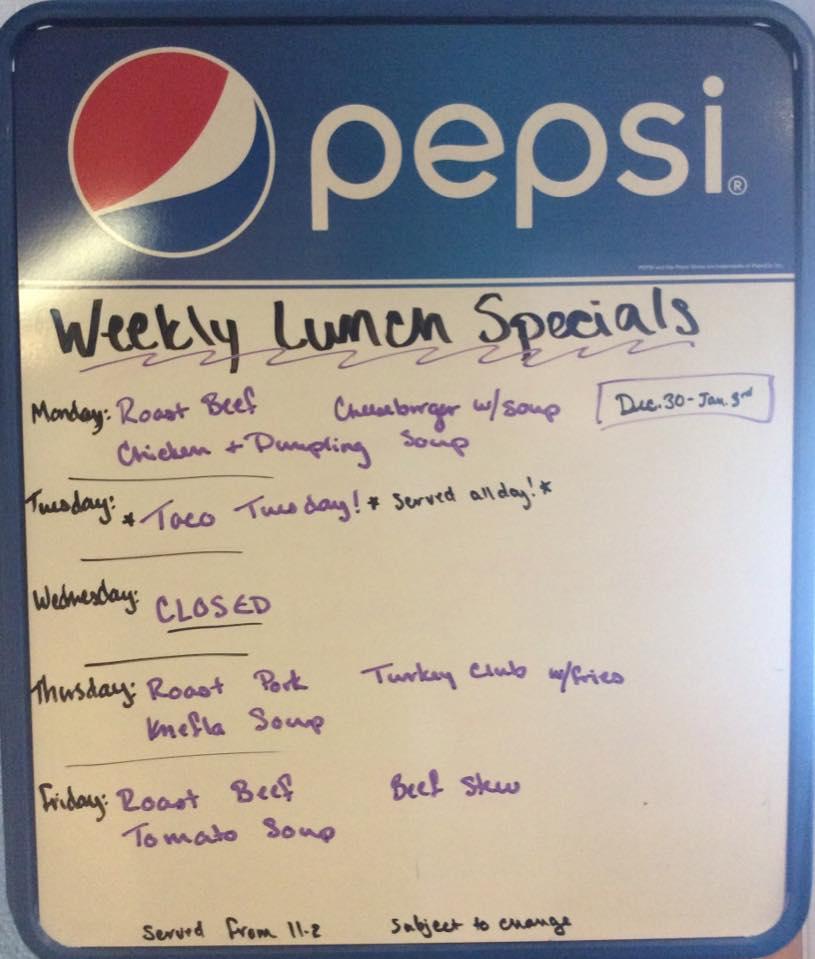 pepsi®
Weekly Lunch Specials
Monday: Roast Beef Cheeseburger w/soup Dec. 30 - Jan. 3rd
Chicken + Dumpling Soup
Tuesday: *Taco Tuesday!* served all day!*
Wednesday: CLOSED
Thursday: Roast Pork Turkey Club w/fries
Knefla Soup
Friday: Roast Beef Beef Stew
Tomato Soup
Served from 11-2 Subject to change